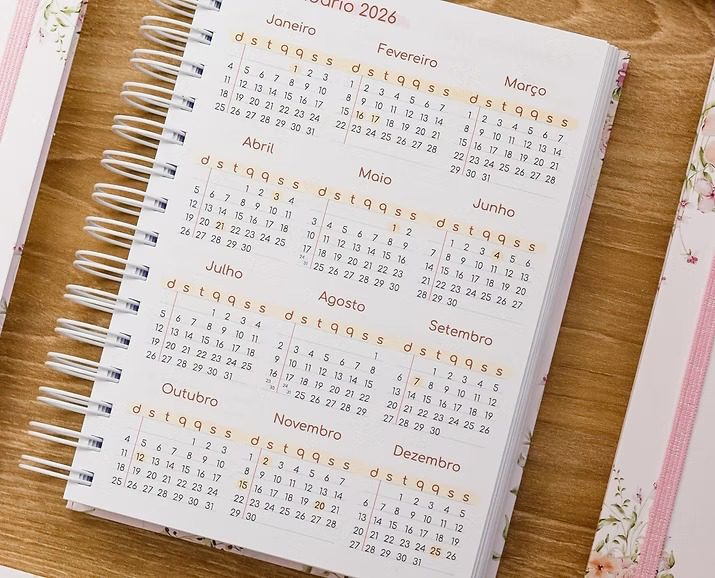 2026
Janeiro
d s t q q s s
1 2 3
4 5 6 7 8 9 10
11 12 13 14 15 16 17
18 19 20 21 22 23 24
25 26 27 28 29 30 31
Fevereiro
d s t q q s s
1 2 3 4 5 6 7
8 9 10 11 12 13 14
15 16 17 18 19 20 21
22 23 24 25 26 27 28
Março
d s t q q s s
1 2 3 4 5 6 7
8 9 10 11 12 13 14
15 16 17 18 19 20 21
22 23 24 25 26 27 28
29 30 31
Abril
d s t q q s s
1 2 3 4
5 6 7 8 9 10 11
12 13 14 15 16 17 18
19 20 21 22 23 24 25
26 27 28 29 30
Maio
d s t q q s s
1 2
3 4 5 6 7 8 9
10 11 12 13 14 15 16
17 18 19 20 21 22 23
24 31 25 26 27 28 29 30
Junho
d s t q q s s
1 2 3 4 5 6
7 8 9 10 11 12 13
14 15 16 17 18 19 20
21 22 23 24 25 26 27
28 29 30
Julho
d s t q q s s
1 2 3 4
5 6 7 8 9 10 11
12 13 14 15 16 17 18
19 20 21 22 23 24 25
26 27 28 29 30 31
Agosto
d s t q q s s
1
2 3 4 5 6 7 8
9 10 11 12 13 14 15
16 17 18 19 20 21 22
23 30 24 31 25 26 27 28 29
Setembro
d s t q q s s
1 2 3 4 5
6 7 8 9 10 11 12
13 14 15 16 17 18 19
20 21 22 23 24 25 26
27 28 29 30
Outubro
d s t q q s s
1 2 3
4 5 6 7 8 9 10
11 12 13 14 15 16 17
18 19 20 21 22 23 24
25 26 27 28 29 30 31
Novembro
d s t q q s s
1 2 3 4 5 6 7
8 9 10 11 12 13 14
15 16 17 18 19 20 21
22 23 24 25 26 27 28
29 30
Dezembro
d s t q q s s
1 2 3 4 5
6 7 8 9 10 11 12
13 14 15 16 17 18 19
20 21 22 23 24 25 26
27 28 29 30 31